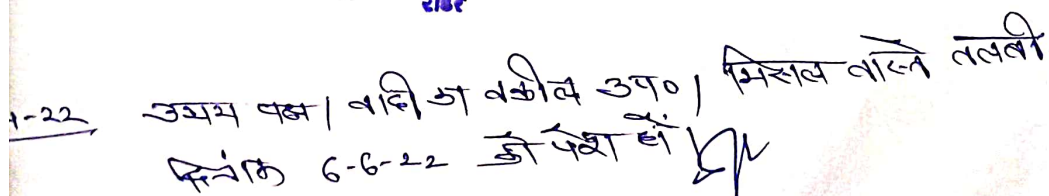 -22 उभय पक्ष | वादी का वकील उप० | मिसल वास्ते तलबी
दिनांक 6-6-22 को पेश हो